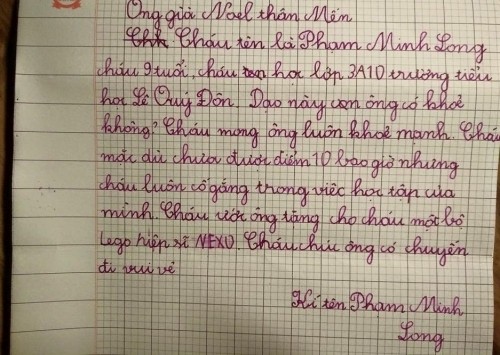 Ông già Noel thân Mến
Cháu tên là Phạm Minh Long
cháu 9 tuổi, cháu học lớp 3A10 trường tiểu
học Lê Quý Đôn. Dạo này ông có khoẻ
không? Cháu mong ông luôn khoẻ mạnh. Cháu
mặc dù chưa được điểm 10 bao giờ nhưng
cháu luôn cố gắng trong việc học tập của
mình. Cháu ước ông tặng cho cháu một bộ
Lego hiệp sĩ NEXO. Cháu chúc ông có chuyến
đi vui vẻ
Kí tên Phạm Minh
Long